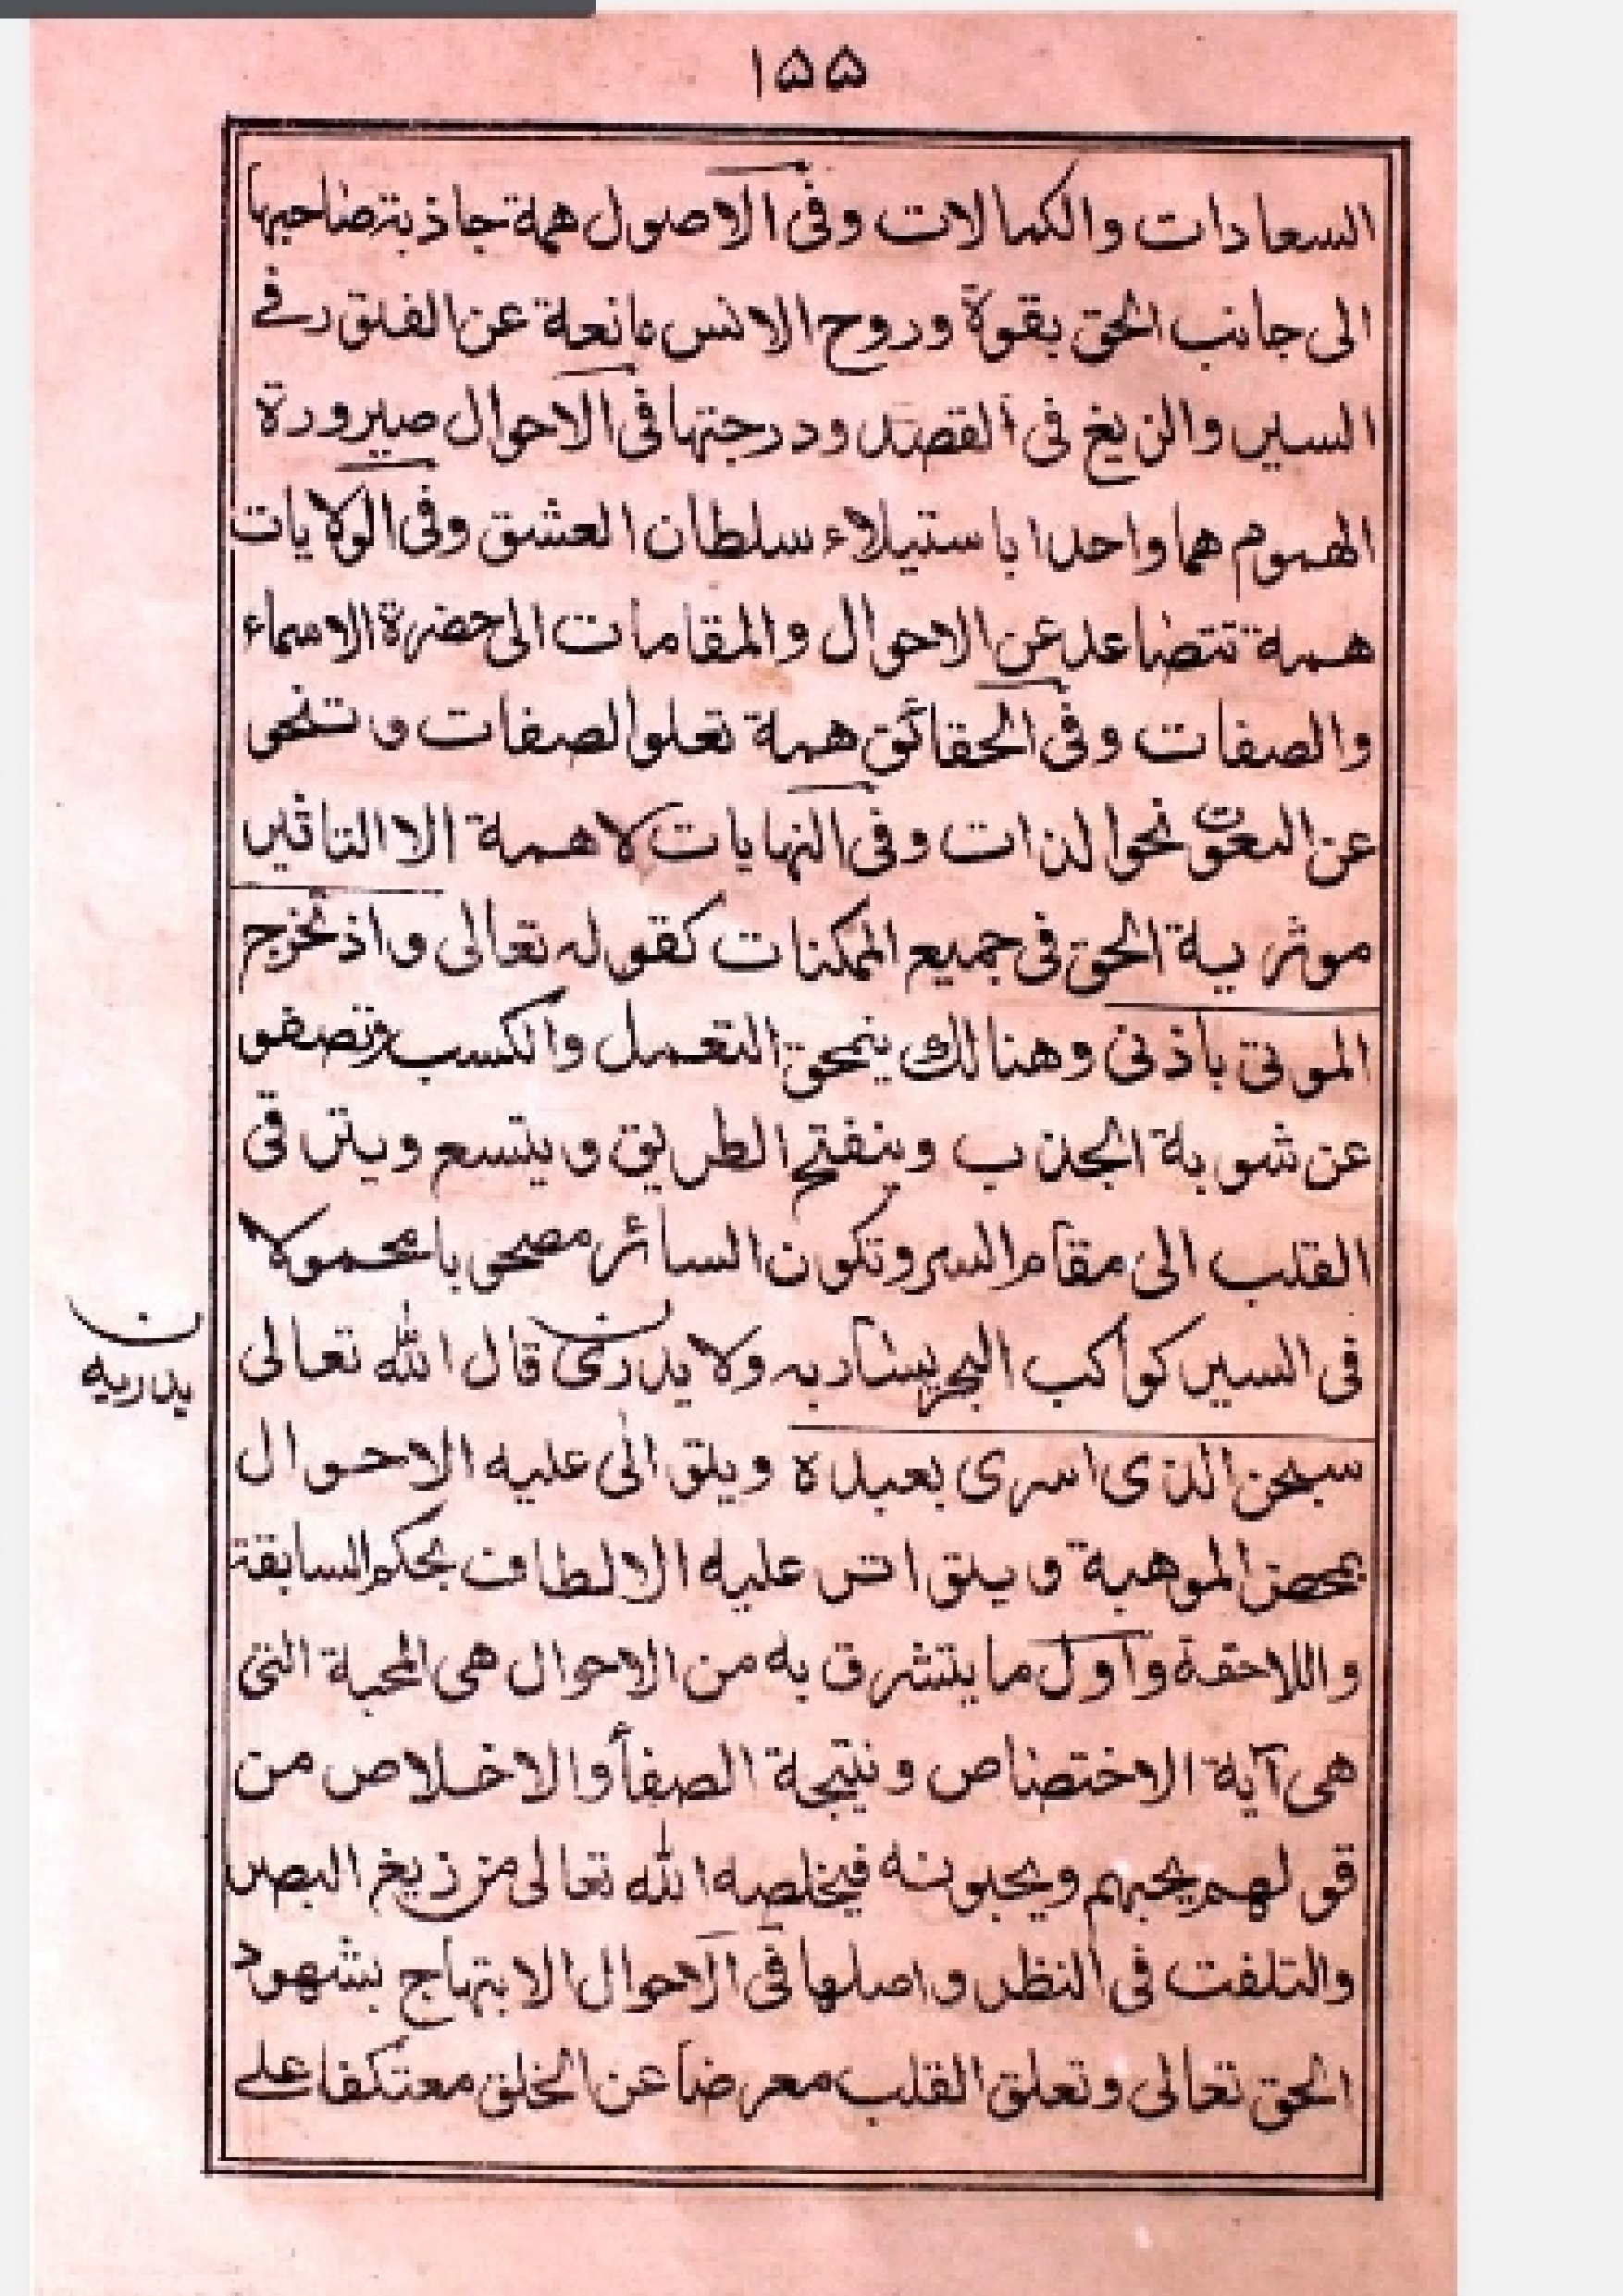 ١٥٥
السعادات والكمالات وفى الاصول همة جاذبة صاحبها
الى جانب الحق بقوة وروح الانس مانعة عن الفتور فے
السير والزيغ فى القصد ودرجتها فى الاحوال صيرورة
الهموم هما واحدا باستيلاء سلطان العشق وفى الولايات
همة تتصاعد عن الاحوال والمقامات الى حضرة الاسماء
والصفات وفى الحقائق همة تعلو الصفات و تنحى
عن النعوت نحو الذات وفى النهايات لاهمة الا التاثير
موثرية الحق فى جميع الممكنات كقوله تعالى واذ تخرج
الموتى باذنى وهنالك ينمحق التعمل والكسب وتصفو
عن شوبة الجذب وينفتح الطريق ويتسع ويترقى
القلب الى مقام السر وتكون السائر محمولا
فى السير كواكب البحر يسار به ولا يدرى قال الله تعالى
يدريه
سبحن الذى اسرى بعبده ويلق الى عليه الاحوال
بمحض الموهبة و عليه الالطاف بحكم السابقة
واللاحقة واول ما يتشرق به من الاحوال هى المحبة التى
هى آية الاختصاص ونتيجة الصفا والاخلاص من
قولهم يحبهم ويحبونه فيخلصه الله تعالى من زيغ البصر
والتلفت فى النظر واصلها فى الاحوال الابتهاج بشهود
الحق تعالى وتعلق القلب معرضا عن الخلق معتكفا علے